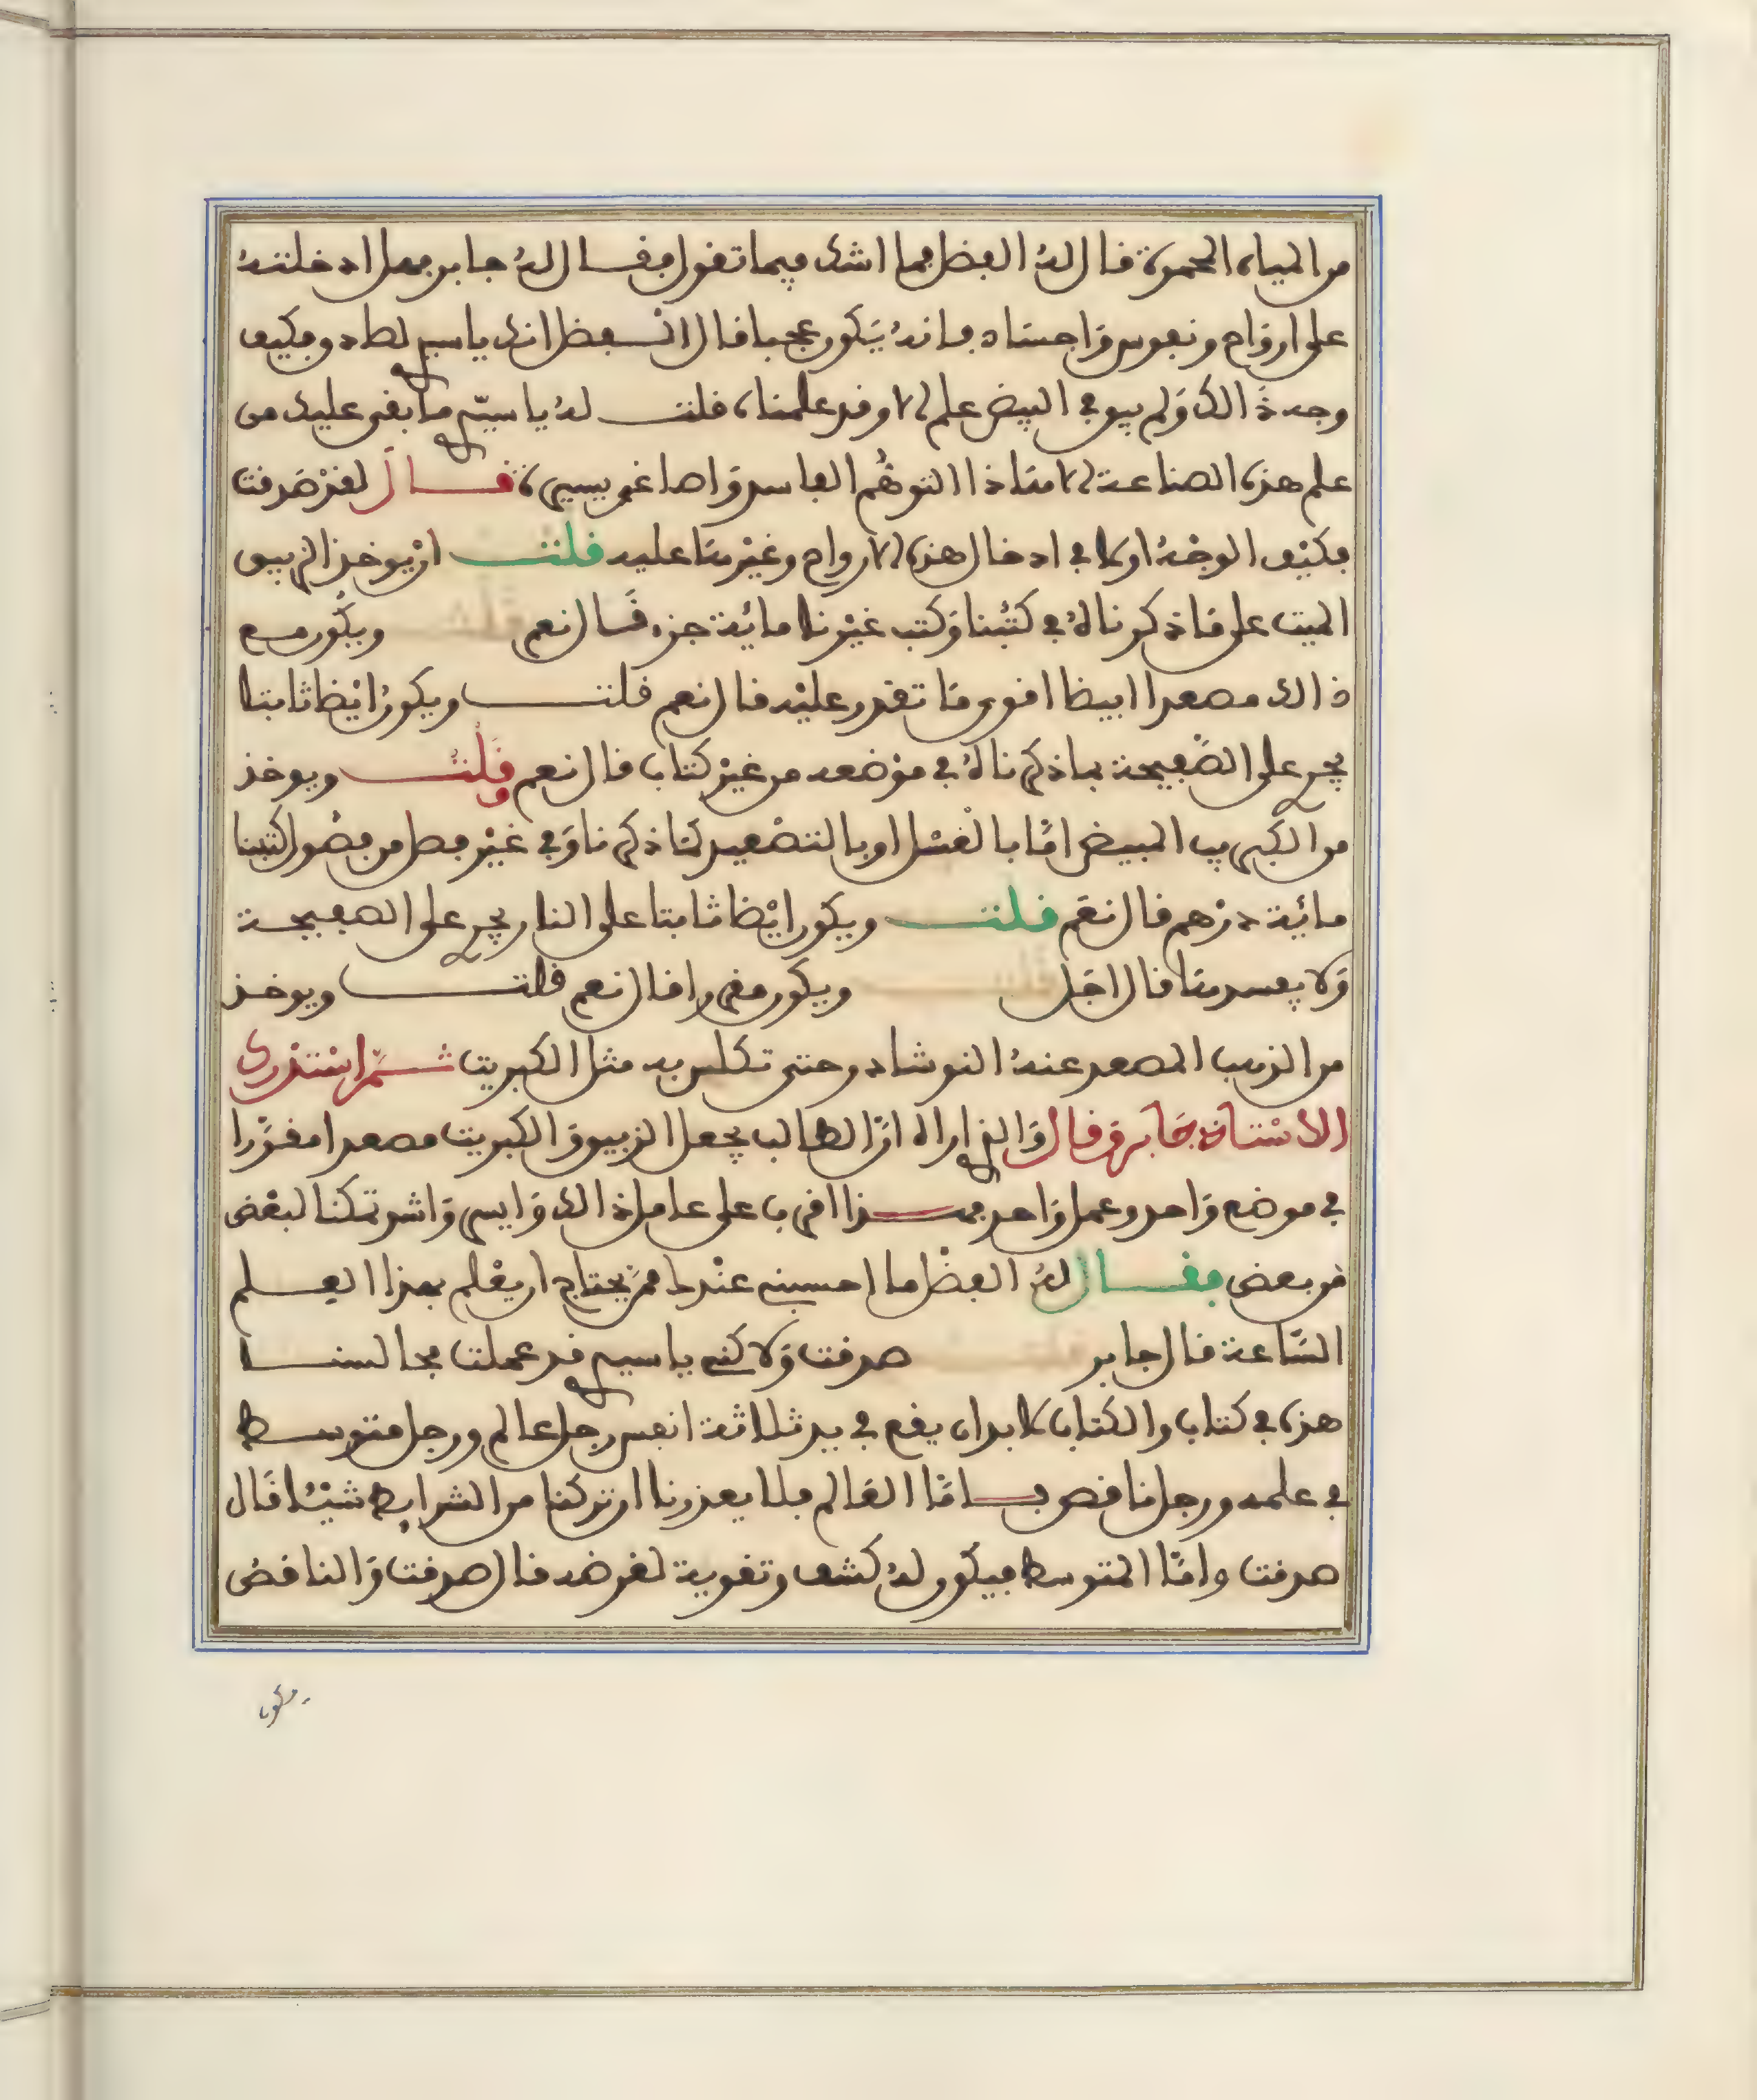 من المياه المحمرة قال له الفضل فما اشك فيما تقول فقال له جابر فهل ادخلته
على ارواح ونفوس واجساد فانه يكون عجبا قال الفضل انك ياسيدي لطاد وفكيف
وجدة ذالك ولم يبق في البيض علم الا وقد علمناه قلت له ياسيدي ما بقى عليك من
علم هذه الصناعة الا مثل ذا التوهم الفاسد واصاغر يسيرة قال لقد صدقت
فكيف الوجه اولا في ادخال هذه الارواح وغيرها عليه قلت ان يوخذ الزيبق
الميت على ما ذكرناه في كتبنا وكتب غيرنا مائة جزء قال نعم قلت ويكون مع
ذالك مصعدا ابيضا اقوى ما تقدر عليه قال نعم قلت ويكون ايضا ثابتا
يجري على الصفيحة بما ذكرناه في موضعه من غير كتاب قال نعم قلت ويوخذ
من الكبريت المبيض اما بالغسل او بالتصعيد كما ذكرنا في غير فصل من فصول كتبنا
مائة درهم قال نعم قلت ويكون ايضا ثابتا على النار يجري على الصفيحة
ولا يفسدها قال اجل قلت ويكون مقررا قال نعم قلت ويوخذ
من الزيبق المصعد عنه النوشادر حتى تكلس به مثل الكبريت ثم استدرك
الاستاذ جابر وقال والذي اراه ان الطالب يجعل الزيبق والكبريت مصعدا مقررا
في موضع واحد وعمل واحد فهذا اقرب على عامل ذالك وايسر واشد تمكنا لبعض
من بعض فقال له الفضل ما احسبني عندك ممن يحتاج ان يعلم بهذا العلم
الساعة قال جابر قلت صدقت ولاكني ياسيدي قد عملت مجالسنا
هذه في كتاب والكتاب لابد ان يقع في يد ثلاثة انفس رجل عالم ورجل متوسط
في علمه ورجل ناقص فاما العالم فلا يعذرنا ان تركنا من الشرايط شيئا قال
صدقت واما المتوسط فيكون له كشف وتقوية لغرضه قال صدقت والناقص